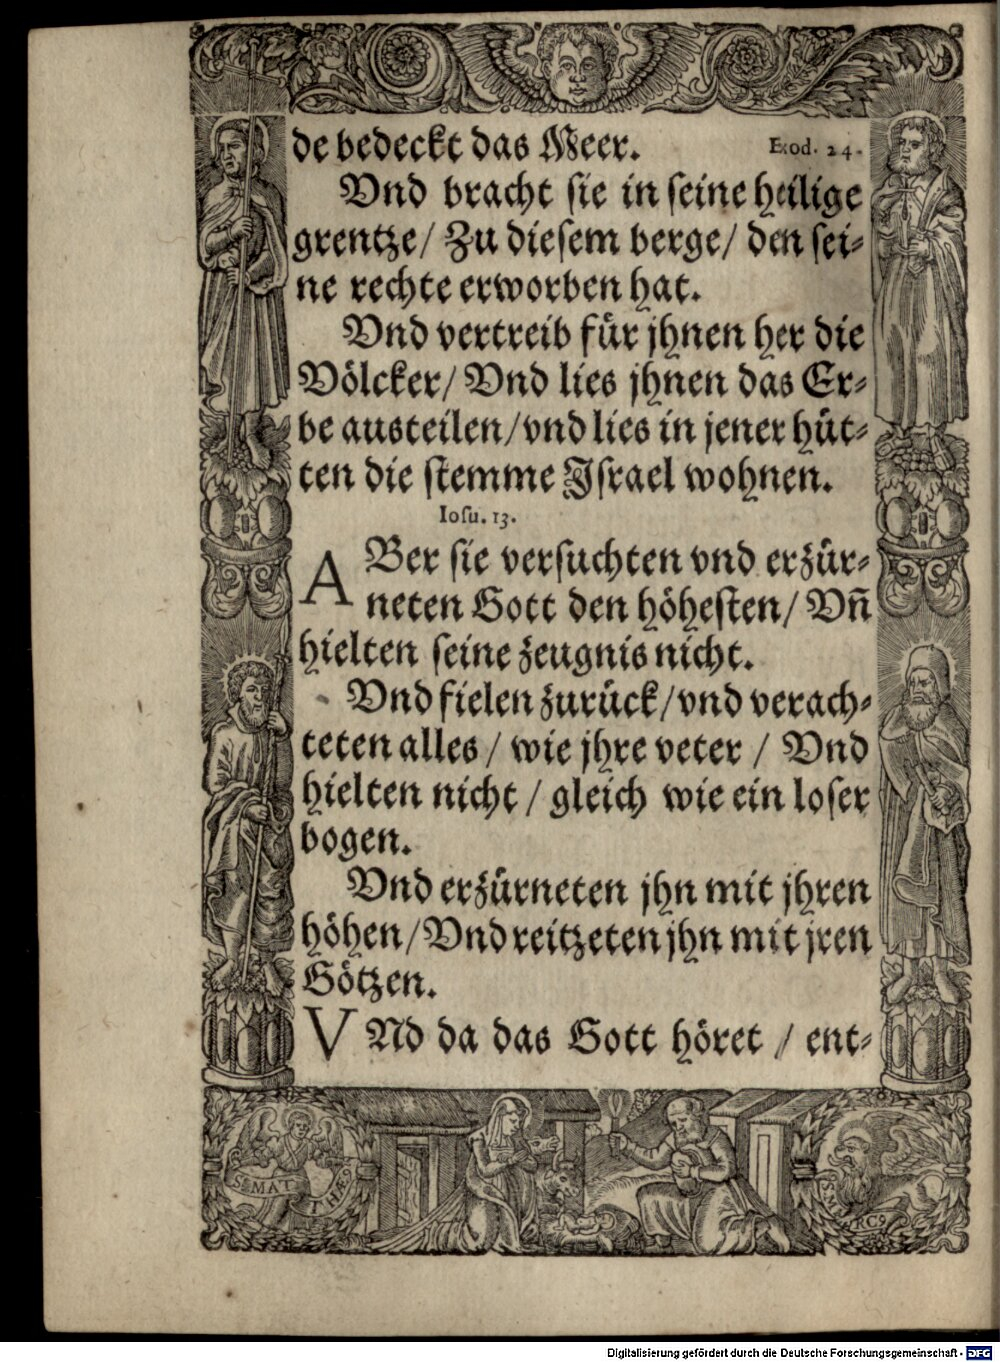 de bedeckt das Meer. Exod. 24.
Vnd bracht sie in seine heilige
grentze/ Zu diesem berge/ den sei-
ne rechte erworben hat.
Vnd vertreib für jhnen her die
Völcker/ Vnd lies jhnen das Er-
be austeilen/vnd lies in jener hüt-
ten die stemme Israel wohnen.
Iosu. 13.
ABer sie versuchten vnd erzür-
neten Gott den höhesten/ Vñ
hielten seine zeugnis nicht.
Vnd fielen zurück/vnd verach-
teten alles/ wie jhre veter/ Vnd
hielten nicht/ gleich wie ein loser
bogen.
Vnd erzürneten jhn mit jhren
höhen/Vnd reitzeten jhn mit jren
Götzen.
VNd da das Gott höret/ ent-
S. MATTHÆ9
S. MARC9
Digitalisierung gefördert durch die Deutsche Forschungsgemeinschaft - DFG